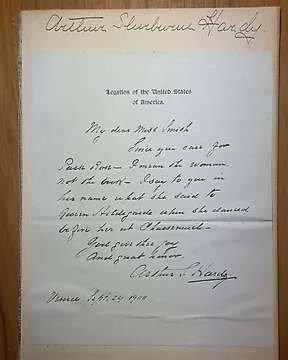 Arthur Sherburne Hardy.
Legation of the United States
of America.
My dear Miss Smith
Since you care for
Passe Rose - I mean the woman,
not the book - I say to you in
her name what she said to
Queen Hildegarde when she danced
before her at
God give thee joy
And great honor.
Arthur S Hardy.
Sept. 24